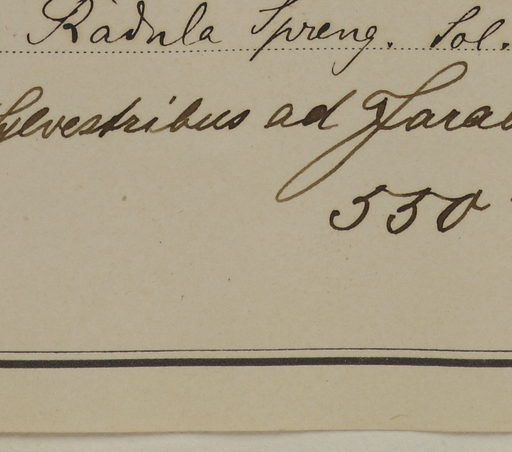 Radula Spreng. Sol.
sylvestribus ad
550